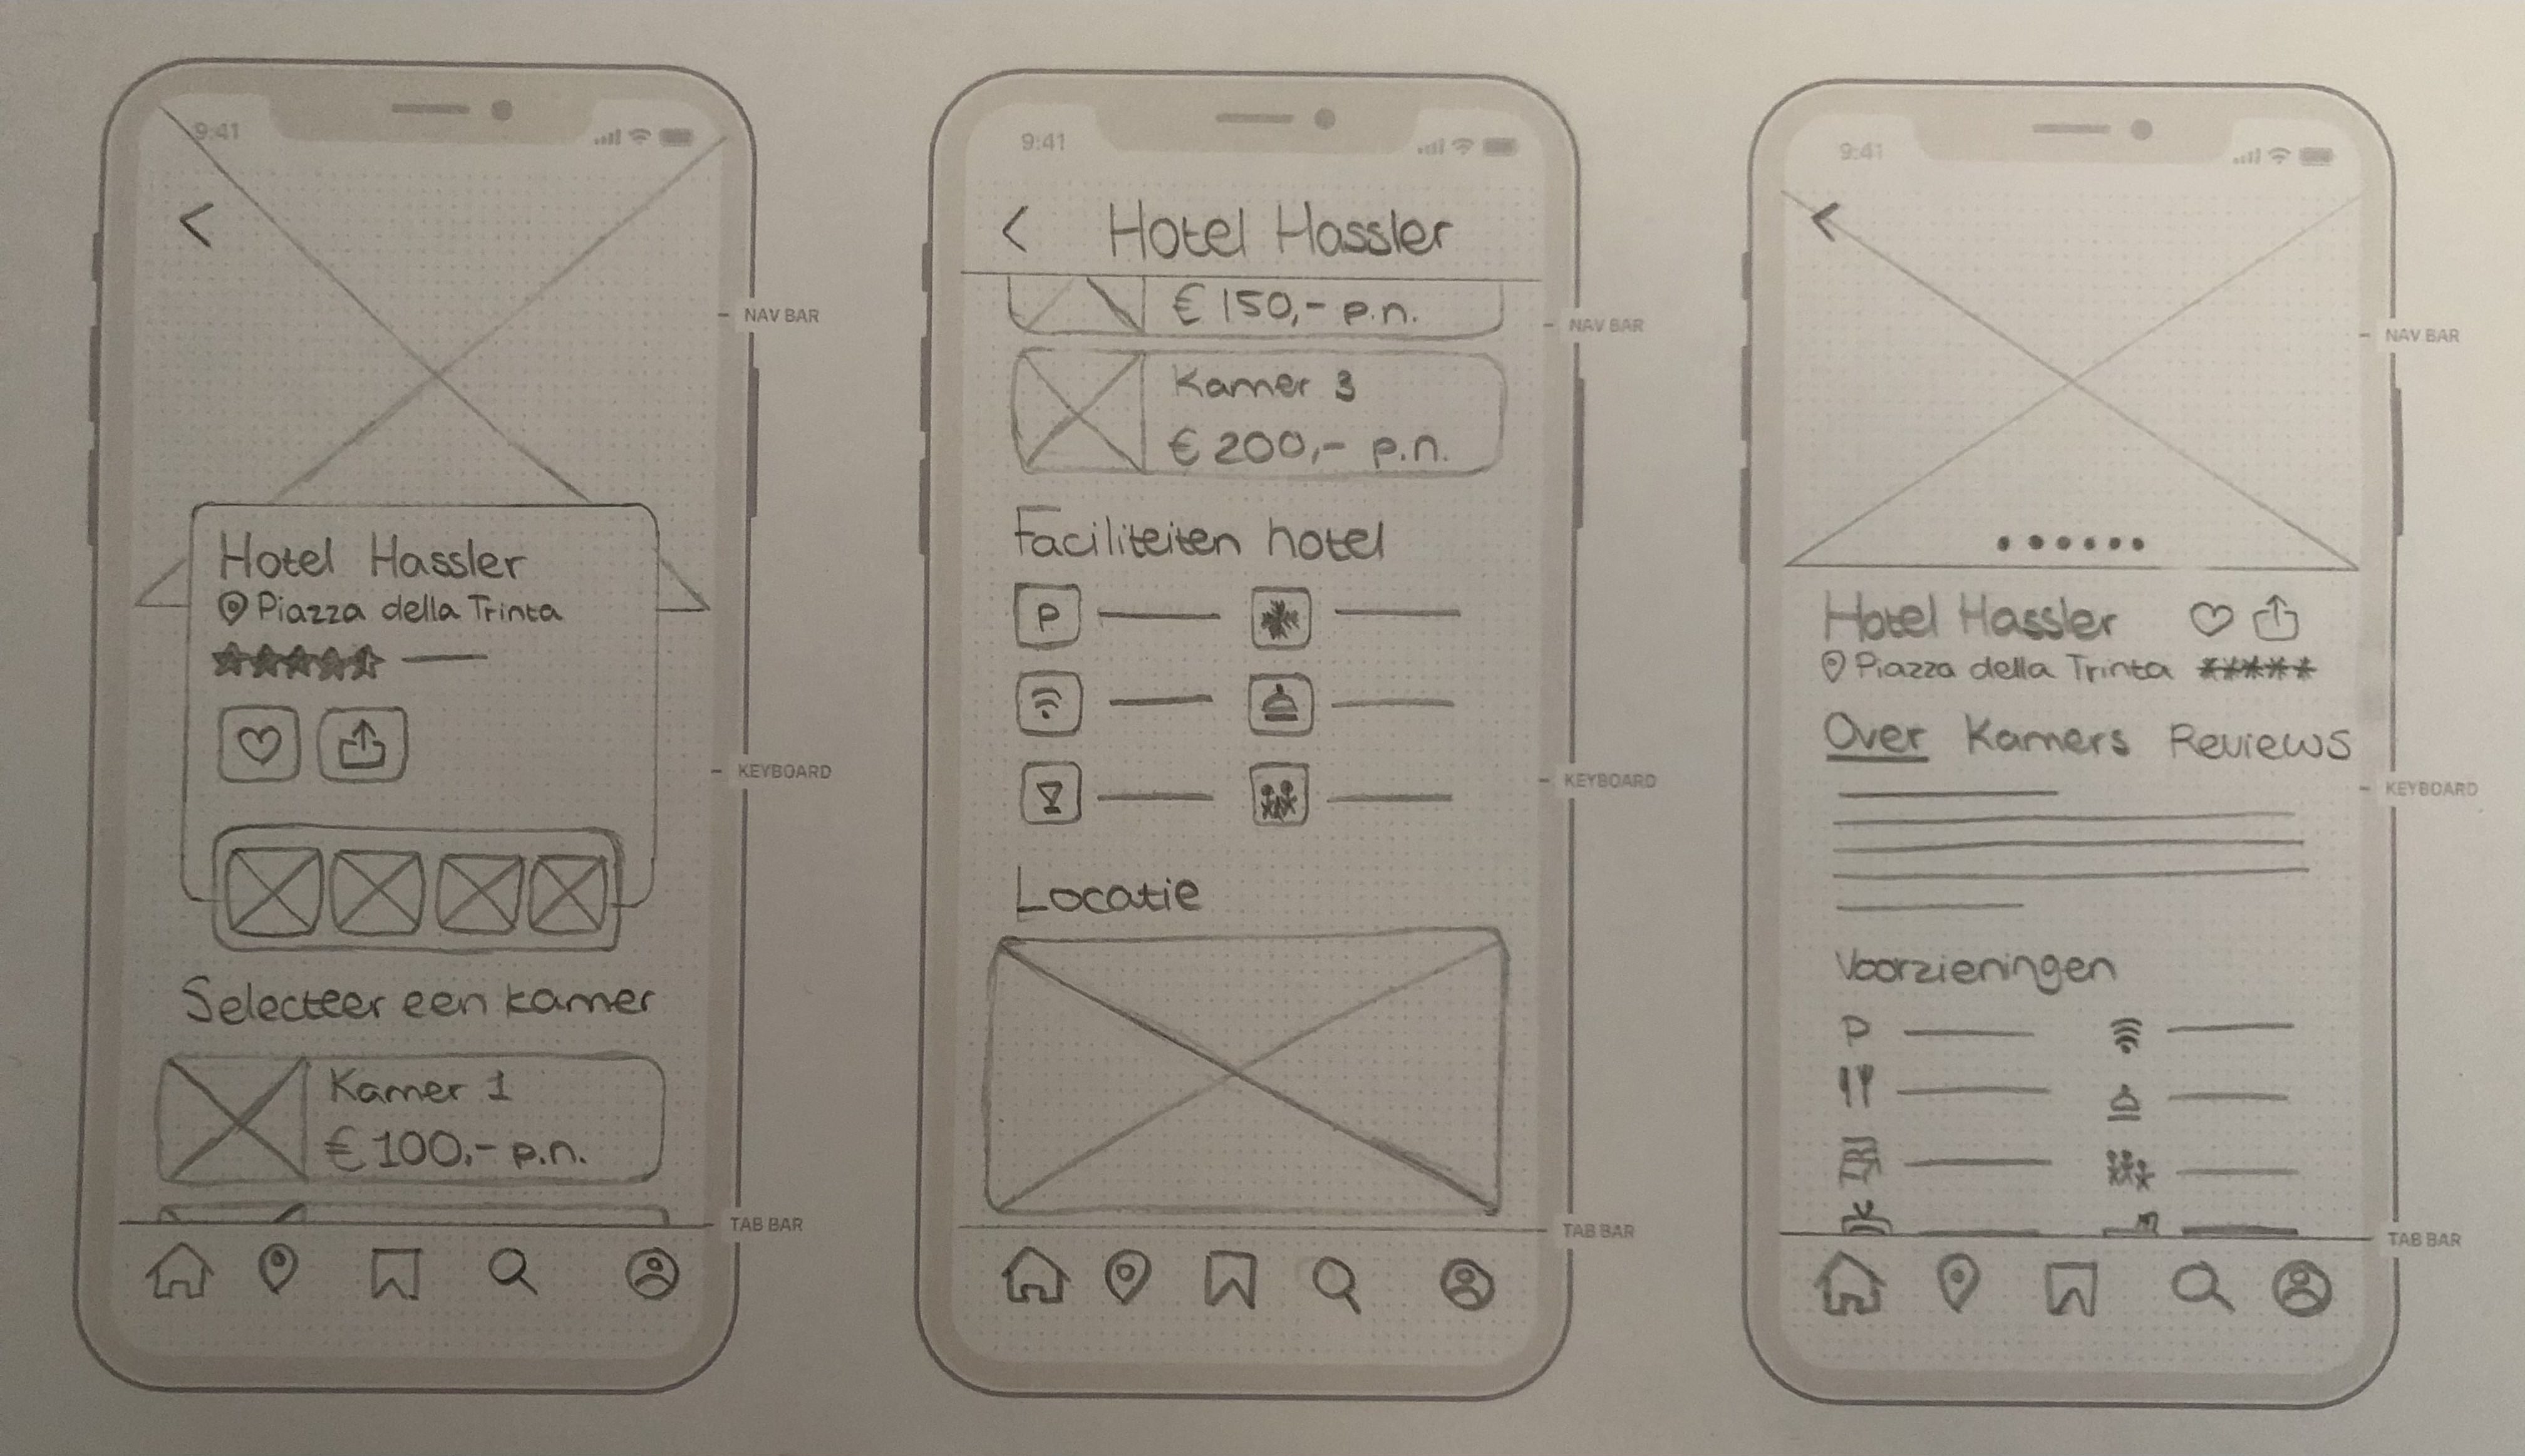 9:41
NAV BAR
Hotel Hassler
Piazza della Trinta
KEYBOARD
Selecteer een kamer
Kamer 1
€ 100,- p.n.
TAB BAR
9:41
< Hotel Hassler
€ 150,- p.n.
NAV BAR
Kamer 3
€ 200,- p.n.
Faciliteiten hotel
P
KEYBOARD
Locatie
TAB BAR
9:41
NAV BAR
Hotel Hassler
Piazza della Trinta
Over Kamers Reviews
KEYBOARD
Voorzieningen
P
TAB BAR